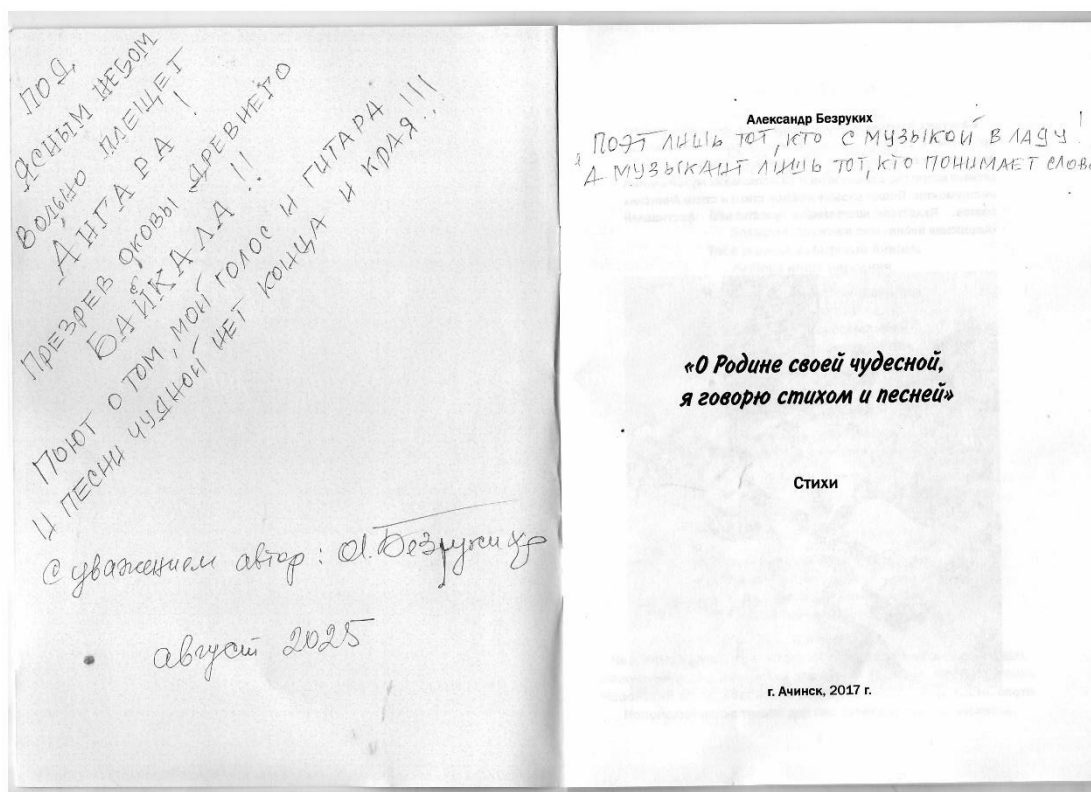 ПОД
ЯСНЫМ НЕБОМ
ВОДЫЮ ПЛЕЩЕТ
АНГАРА !
ПРЕЗРЕВ ОКОВЫ ДРЕВНЕГО
БАЙКАЛА !!
ПОЮТ О ТОМ, МОЙ ГОЛОС И ГИТАРА
И ПЕСНИ ЧУДНОЙ НЕТ КОНЦА И КРАЯ...!!!
С уважением автор: А. Безруких
август 2025
Александр Безруких
ПОЭТ ЛИШЬ ТОТ, КТО С МУЗЫКОЙ В ЛАДУ!
А МУЗЫКАНТ ЛИШЬ ТОТ, КТО ПОНИМАЕТ СЛОВ
«О Родине своей чудесной,
я говорю стихом и песней»
Стихи
г. Ачинск, 2017 г.